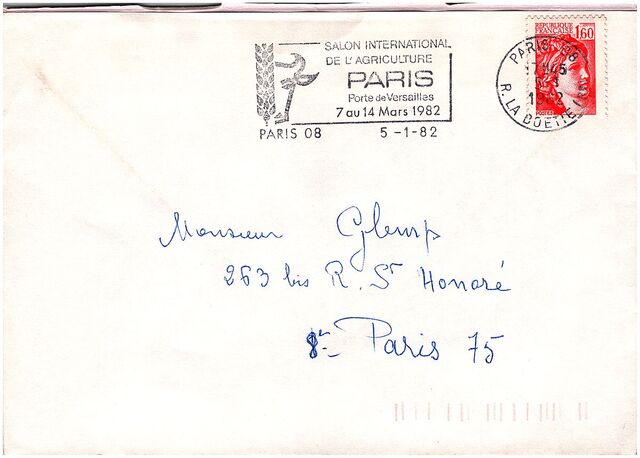 SALON INTERNATIONAL
DE L'AGRICULTURE
PARIS
Porte de Versailles
7 au 14 Mars 1982
PARIS 08 5-1-82
REPUBLIQUE
FRANCAISE 1,60
POSTES
PARIS 08
R. LA BOETIE
Monsieur
263 bis R. St Honoré
8e Paris 75